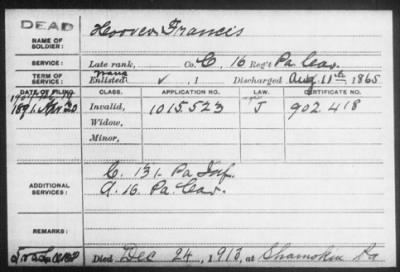 DEAD
NAME OF SOLDIER: Hoover Francis
SERVICE: Late rank, Co. C. 16 Reg't Pa Cav.
TERM OF SERVICE: Enlisted , 1 Discharged Aug. 11th, 1865
DATE OF FILING. CLASS. APPLICATION NO. LAW. CERTIFICATE NO.
1891. Apr 20 Invalid, 1015.523 J 902.418
Widow,
Minor,
ADDITIONAL SERVICES: C. 131. Pa Inf.
A. 16. Pa. Cav.
REMARKS:
Died Dec 24, 1913, at Shamokin Pa